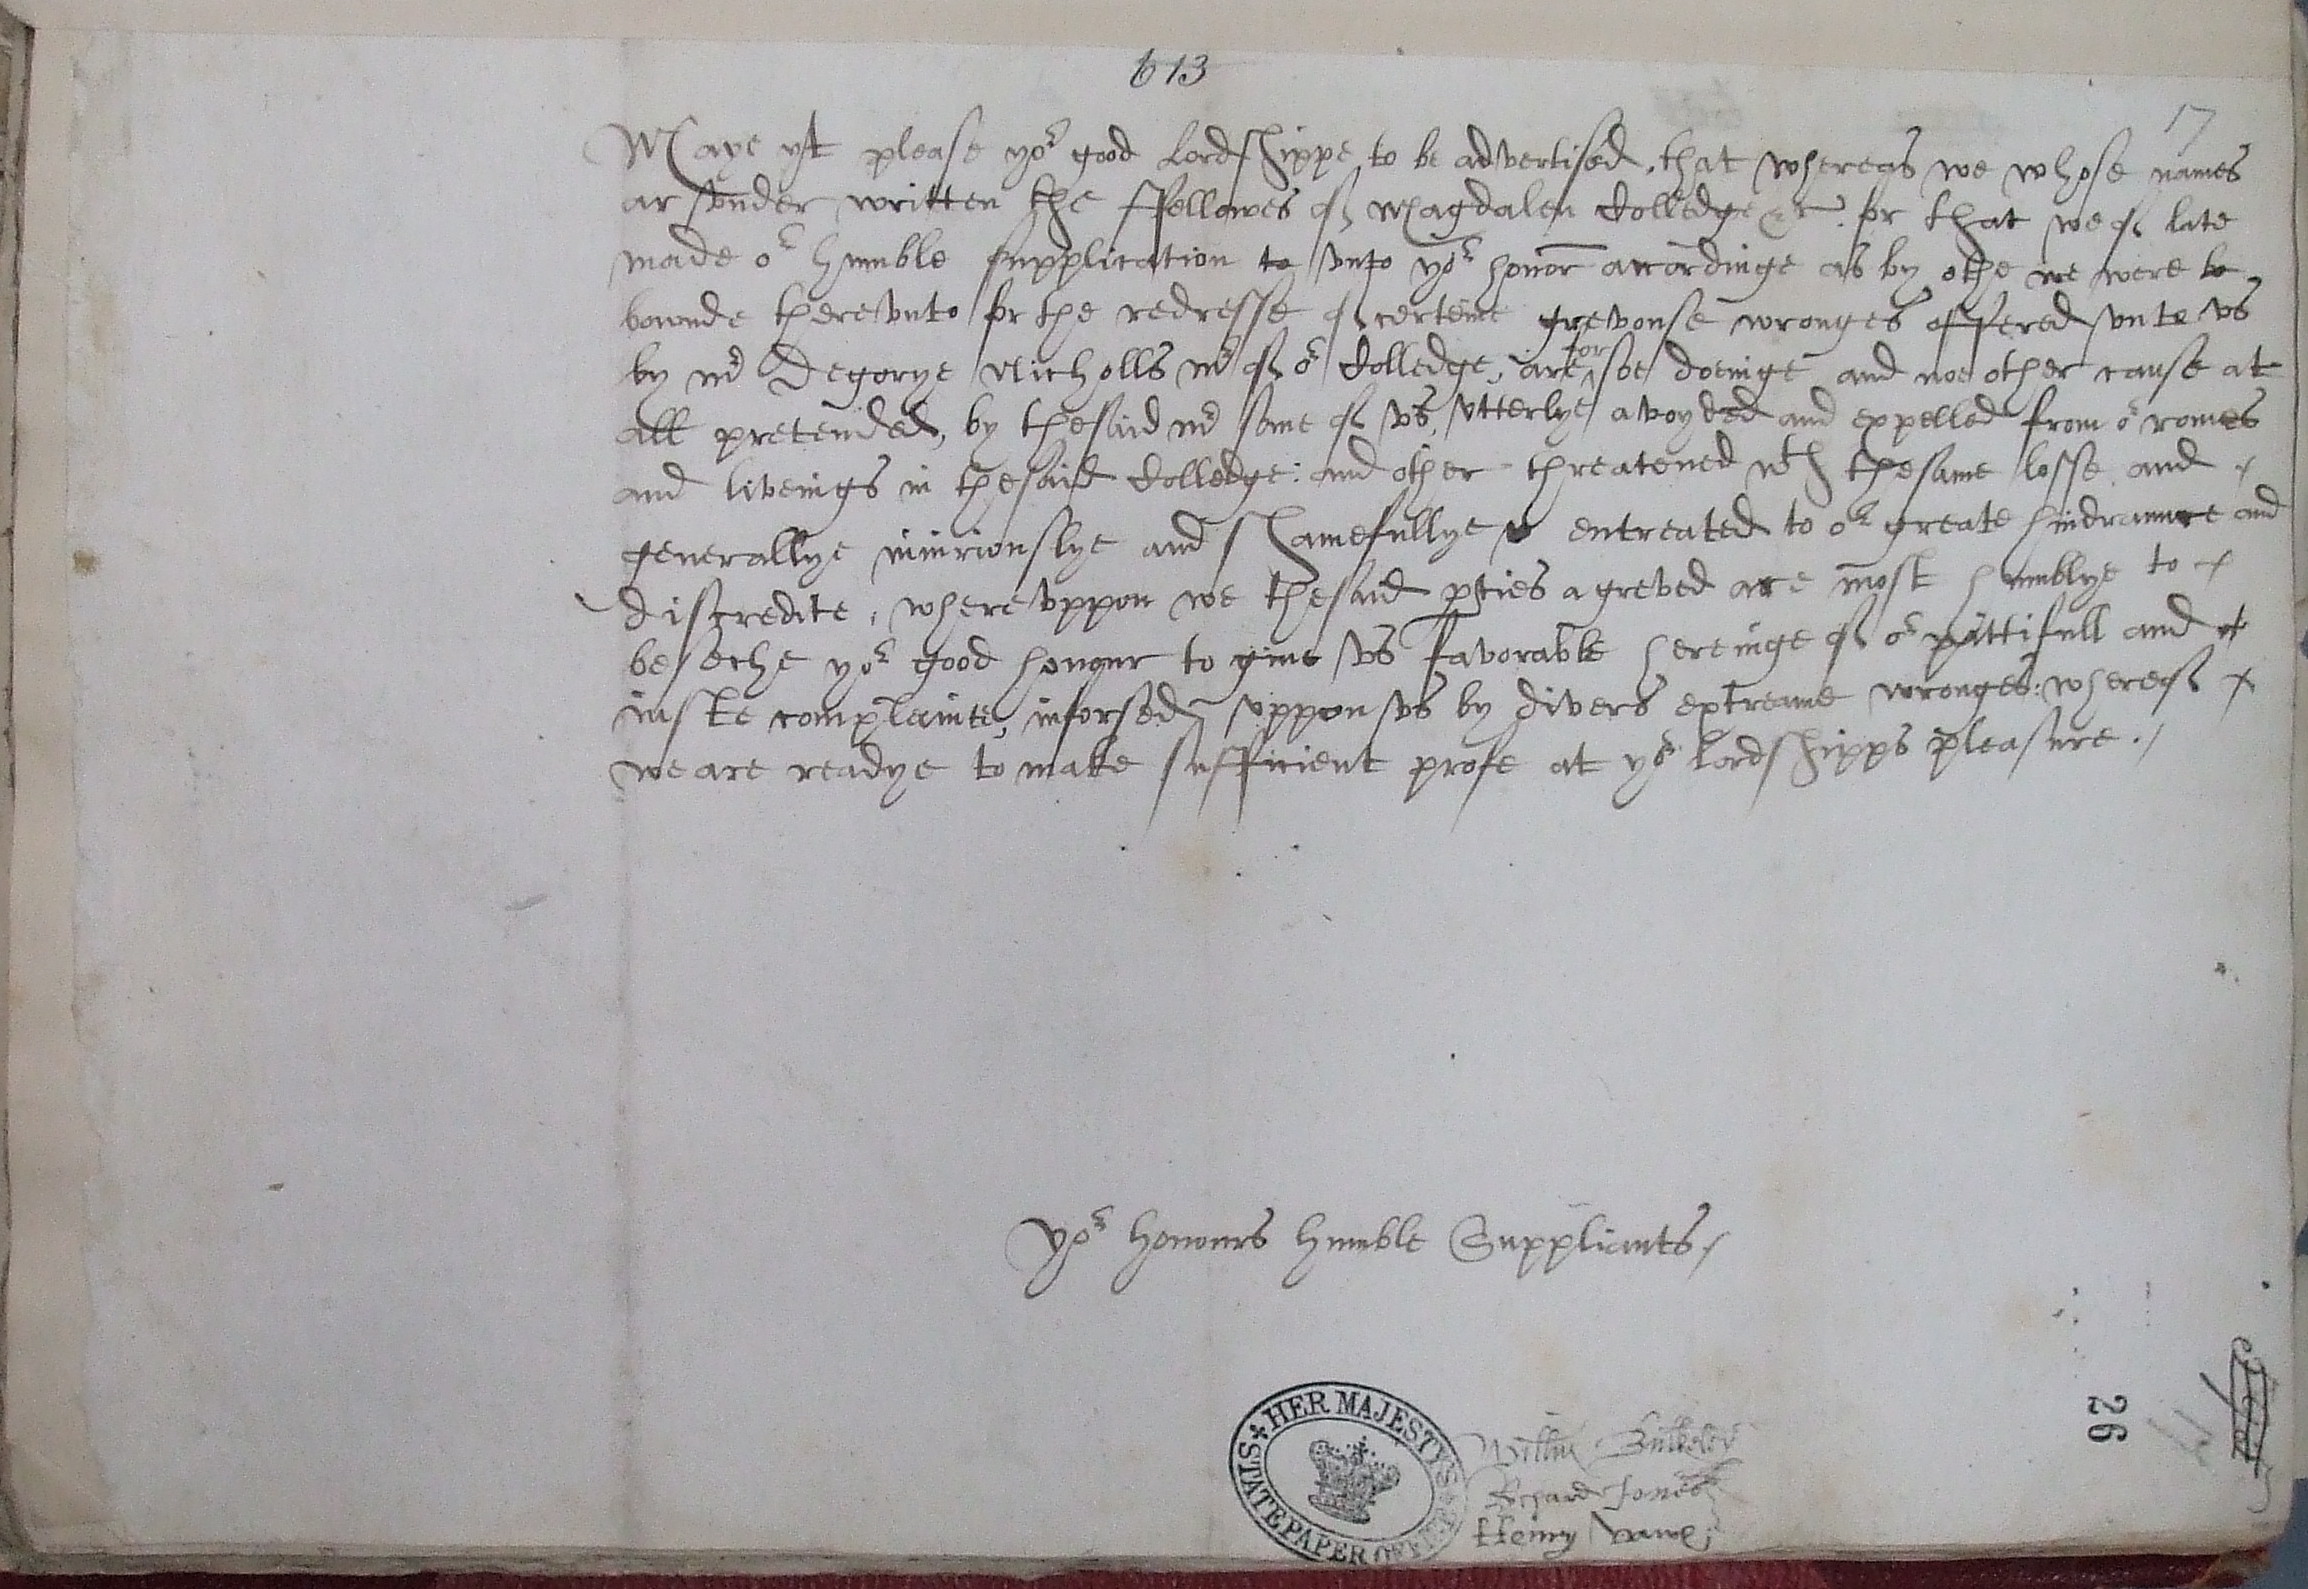 613
17
Maye yt please yor good Lordshippe to be advertised, that whereas we whose names
ar vnder written the ffellowes of Magdalen Colledge &c. for that we of late
made or humble supplication to vnto yor honor accordinge as by othe we were to
bounde therevnto for the redresse of certeine grevouse wronges offered vnto vs
by mr Degorye Nicholls mr of or Colledge, are for soe doeinge and noe other cause at
all pretended, by thesaid mr some of vs, vtterlye avoyded and expelled from or romes
and liveings in thesaid Colledge: and other threatened wth thesame losse and
generallye iniuriouslye and shamefullye entreated to or greate hindraunce and
discredite, wherevppon we thesaid pties agreved are most humblye to
beseche yor good honour to give vs favorable hereinge of or pittifull and
iuste complainte, inforsed vppon vs by divers extreame wronges: whereof
we are readye to make sufficient profe at yor Lordshipps pleasure.
Yor honours humble Suppliants
HER MAJESTY'S STATE PAPER OFFICE
Willm Bulkeley
Richard Jones
Henry
26